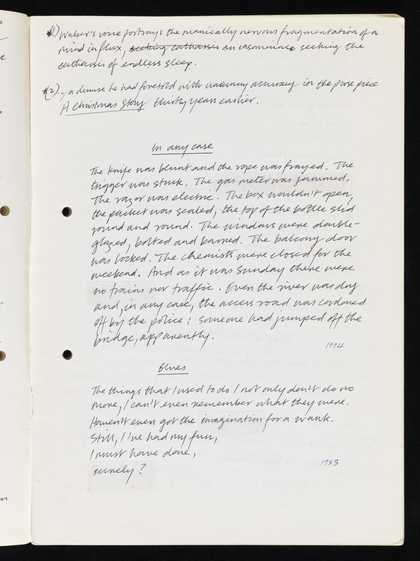 (1) Weber's voice portrays the manically nervous fragmentation of a
mind in flux, seeking catharsis an insomniac seeking the
catharsis of endless sleep.
(2) – a demise he had foretold with uncanny accuracy in the prose piece
A Christmas Story thirty years earlier.
In any case
The knife was blunt and the rope was frayed. The
trigger was stuck. The gas meter was jammed.
The razor was electric. The box wouldn't open,
the packet was sealed, the top of the bottle slid
round and round. The windows were double-
glazed, bolted and barred. The balcony door
was locked. The chemists were closed for the
weekend. And as it was Sunday there were
no trains nor traffic. Even the river was dry
and, in any case, the access road was cordoned
off by the police: someone had jumped off the
bridge, apparently.
1994
Blues
The things that I used to do I not only don't do no
more, I can't even remember what they were.
Haven't even got the imagination for a wank.
Still, I've had my fun,
I must have done,
surely?
1983